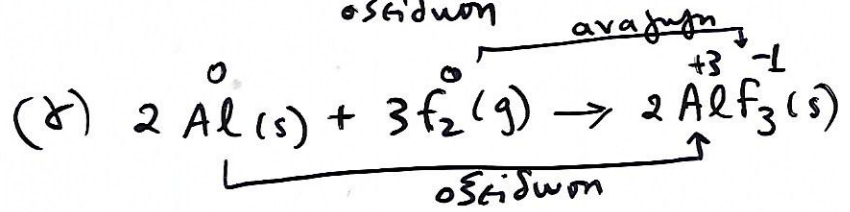 οξείδωση
αναγωγή
0 0 +3 -1
(γ) 2 Al (s) + 3 F₂ (g) → 2 AlF₃ (s)
οξείδωση